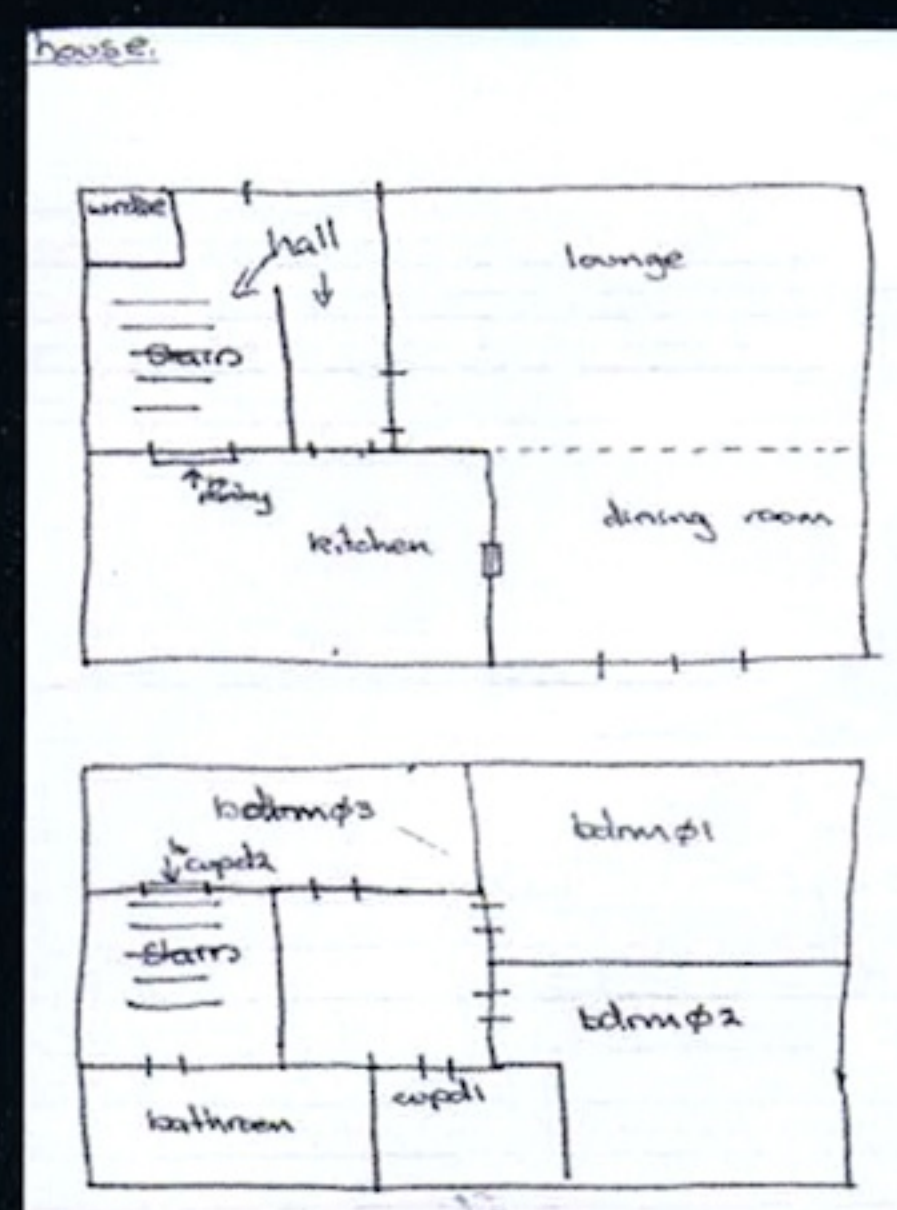 house.
wrdbe
hall
lounge
stairs
kitchen
dining room
bdrmø3
bdrmø1
cupd2
stairs
bdrmø2
cupd1
bathroom